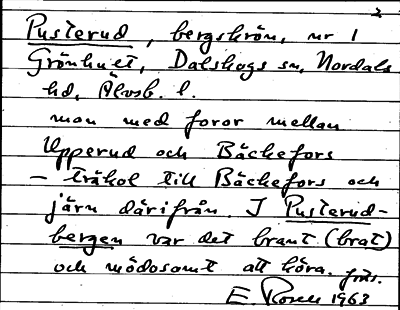 2
Pusterud, bergskrön, nr 1
Grönhult, Dalskogs sn, Nordals
hd, Älvsb. l.
man med foror mellan
Upperud och Bäckefors
– träkol till Bäckefors och
järn därifrån. I Pusterud-
bergen var det brant (brat)
och mödosamt att köra.
E. Rosell 1963